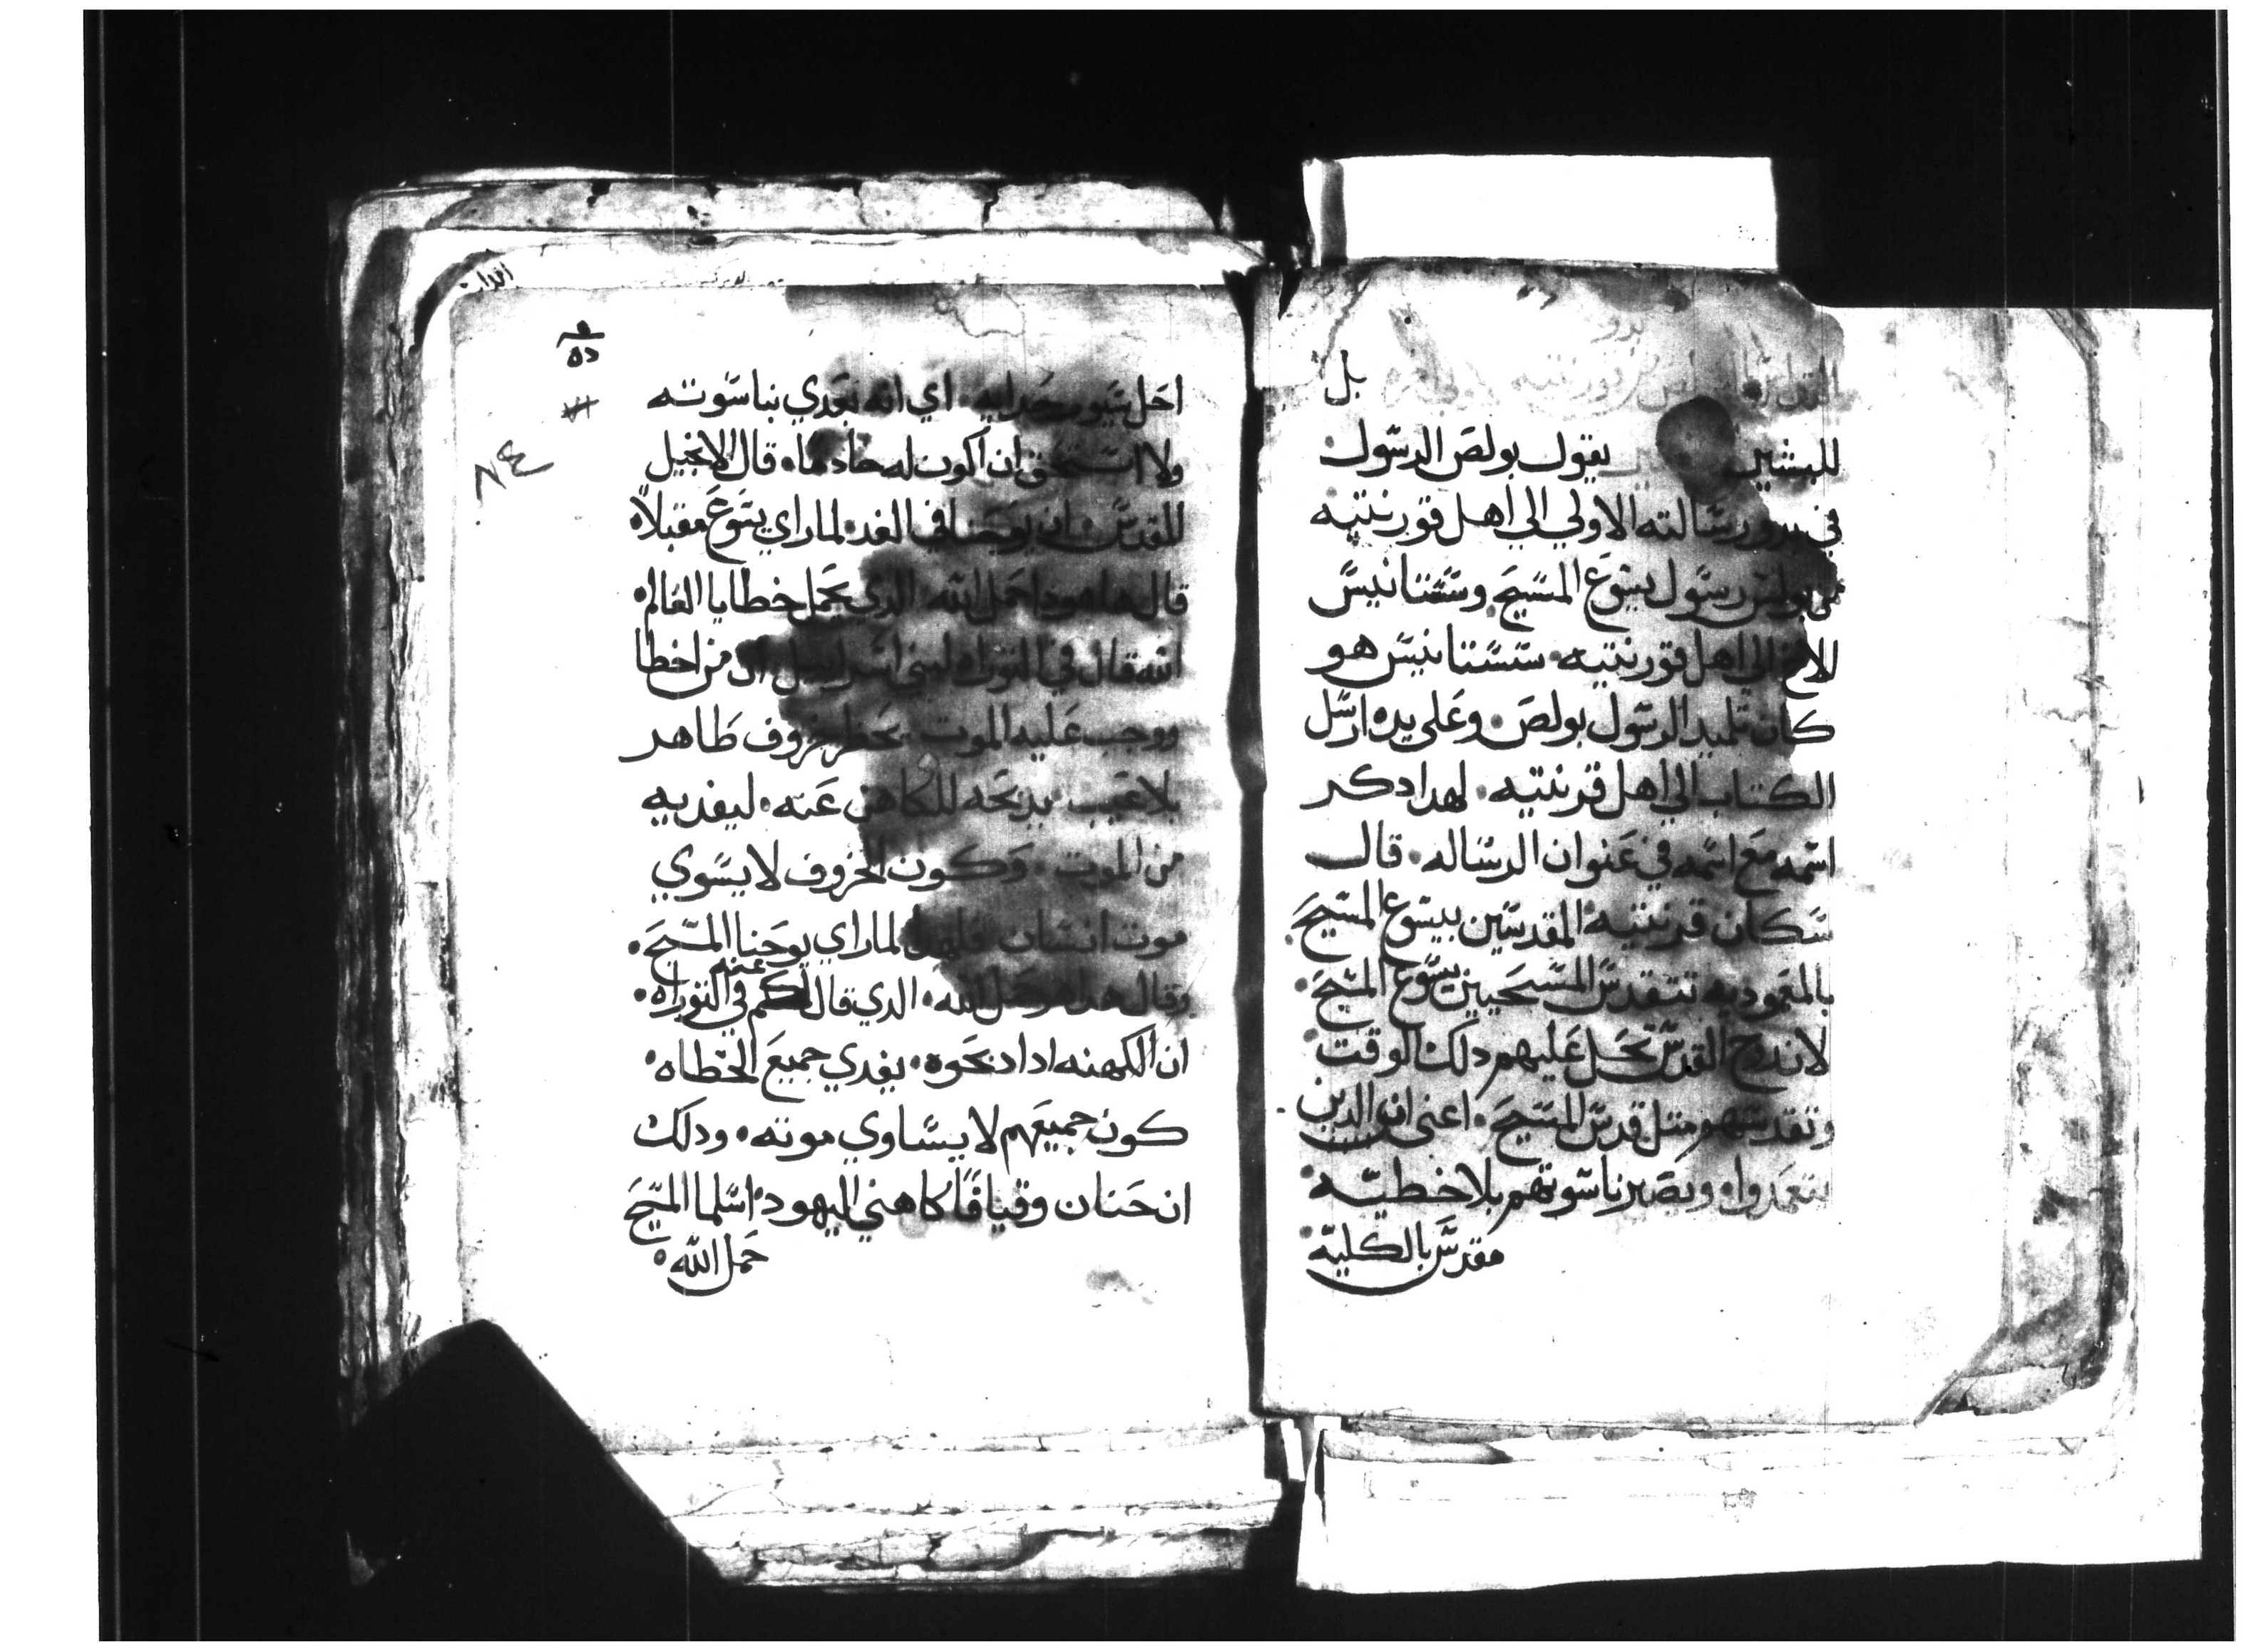 بل
للبشير يقول بولص الرسول
في رسالته الاولي الي اهل قورنتيه
بولس رسول يسوع المسيح وسستانيس
للاخ الي اهل قورنتيه • سستانيس هو
كان تلميد الرسول بولص • وعلي يده ارسل
الكتاب الي اهل قرنتيه • لهدا دكر
اسمه مع اسمه في عنوان الرساله • قال
سكان قرنتيه المقدسين بيسوع المسيح •
بالمعموديه تتقدس المسيحيين بيسوع المسيح •
لان روح القدس تحل عليهم دلك الوقت
وتقدسهم متل قدس المسيح • اعني ان الدين
يتعمدوا • وتصير ناسوتهم بلا خطيه •
مقدس بالكليه
ده
٨٤
احل سيور حدايه • اي انه بعدي بناسوته
ولا استحق ان اكون له خادما • قال الانجيل
المقدس • ان يوحنا في الغد • لما راي يسوع مقبلا •
قال ها هودا حمل الله • الدي يحمل خطايا العالم •
الله قال في التوراه لبني اسراييل ان من اخطا
ووجب عليه الموت يحضر خروف طاهر
بلا عيب • يدبحه للكاهن عنه • ليفديه
من الموت • وكون الخروف لا يسوي
موت انسان فلهدا لما راي يوحنا المسيح •
وقال هدا هو حمل الله • الدي قال لكم عنه في التوراه •
ان الكهنه ادا دبحوه • يفدي جميع الخطاه •
كون جميعهم لا يساوي موته • ودلك
ان حنان وقيافا كاهني اليهود • اسلما المسيح
حمل الله •